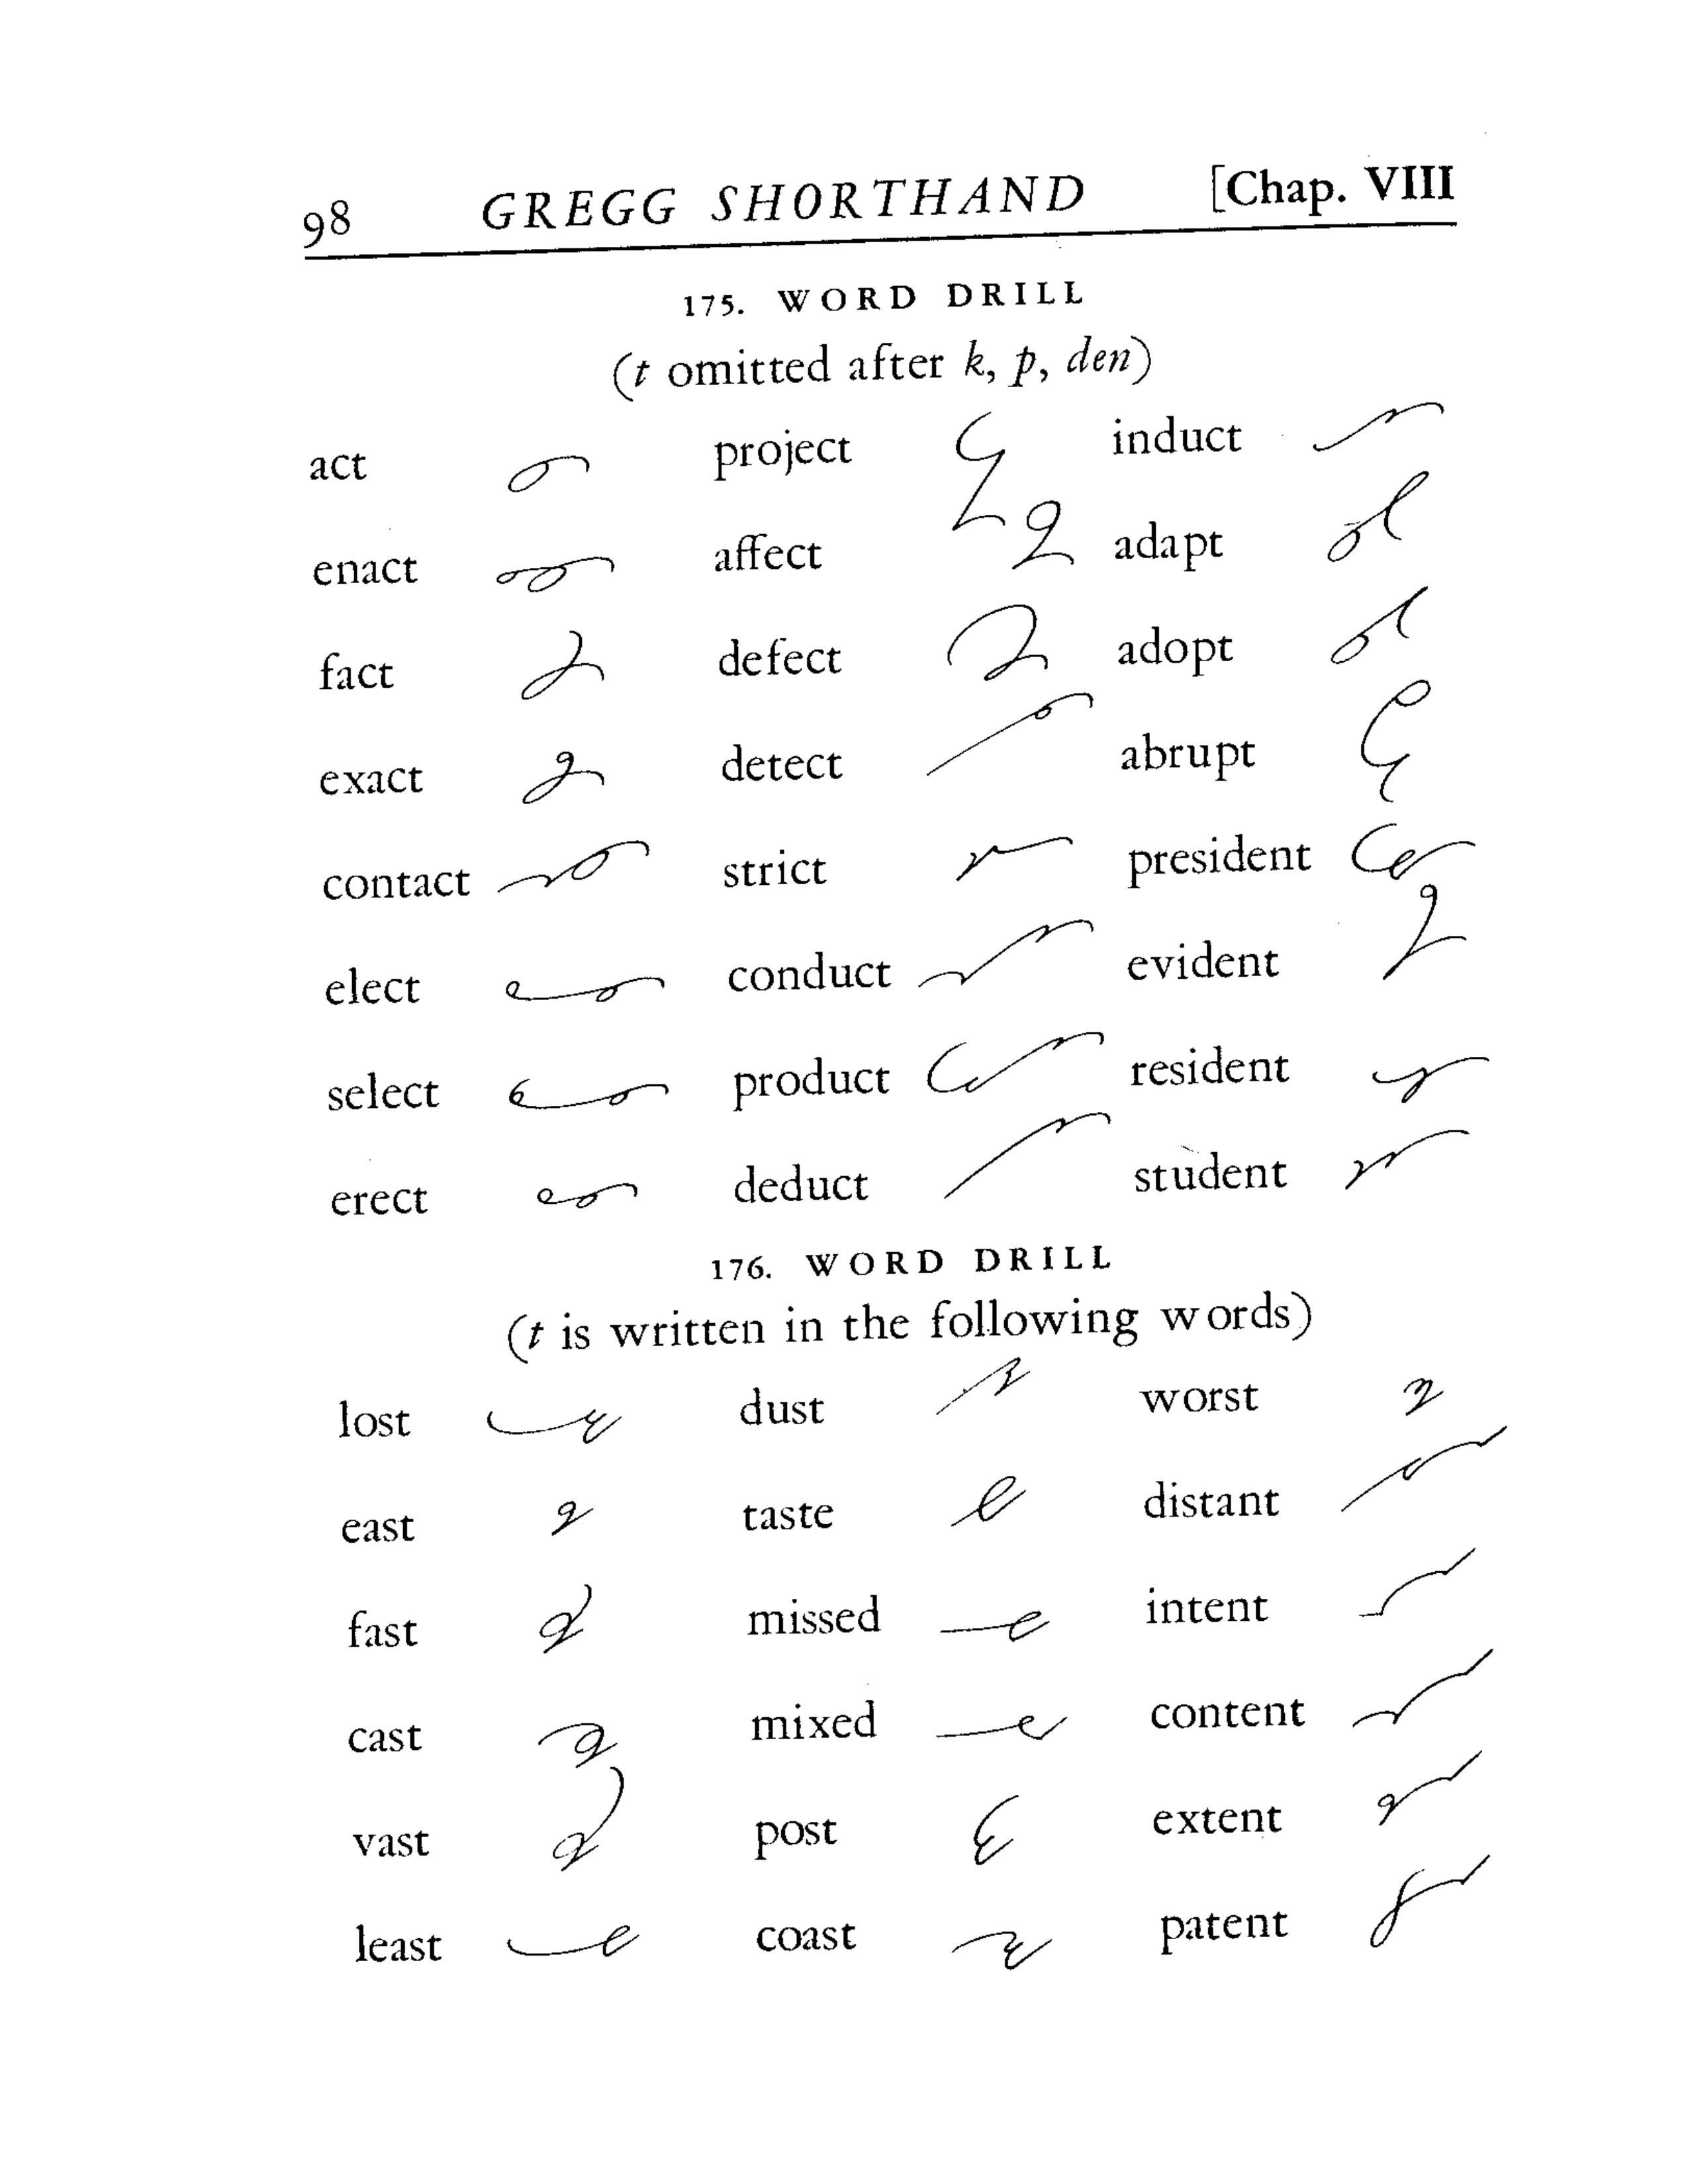 98 GREGG SHORTHAND [Chap. VIII
175. WORD DRILL
(t omitted after k, p, den)
act project induct
enact affect adapt
fact defect adopt
exact detect abrupt
contact strict president
elect conduct evident
select product resident
erect deduct student
176. WORD DRILL
(t is written in the following words)
lost dust worst
east taste distant
fast missed intent
cast mixed content
vast post extent
least coast patent